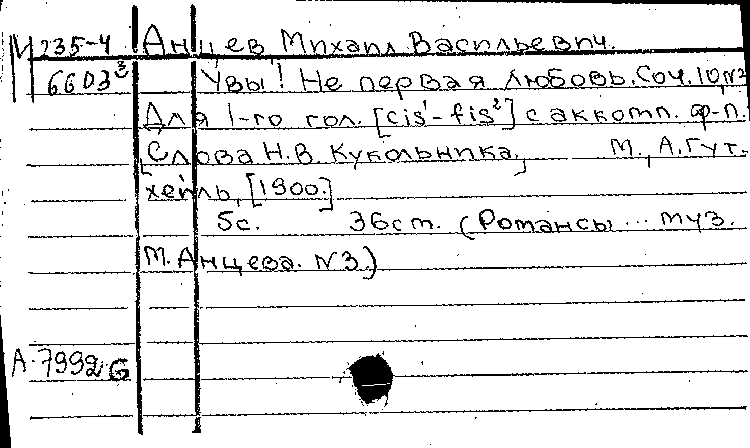 М 235-4 Анцев Михаил Васильевич.
6603³ Увы! Не первая любовь. Соч. 10, N2
Для 1-го гол. [cis¹-fis²] с аккомп. ф-п.
[Слова Н.В. Кукольника.] М., А. Гут-
хейль, [1900.]
5с. 36 cm. (Романсы ... муз.
М. Анцева. N3.)
А-7992 G